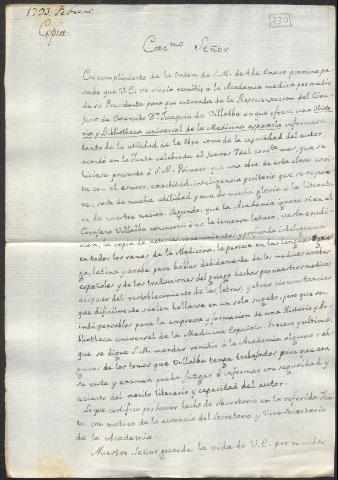 1793. Febrero
Copia
220
Excmo Señor
En cumplimiento de la Orden de S.M. de 4 de Enero proximo pa-
sado que V.E. se sirvió remitir a la Academia medica por medio
de su Presidente para que enterada de la Representacion del Ciru-
jano de Exercito Dn Joaquin de Villalba en que ofrece una Histo-
ria y Bibliotheca universal de la Medicina española informara
tanto de la utilidad de la obra como de la capacidad del autor;
acordó en la Junta celebrada el Jueves 7 del corrte mes, que se
hiciese presente á S.M. Primero, que una obra de esta clase escri-
ta con el esmero, exactitud, inteligencia y criterio que se requie-
re, seria de mucha utilidad y aun de mucha gloria á la literatu-
ra de nuestra nacion. Segundo, que la Academia ignora si en el
Cirujano Villalba concurren ó no la inmensa letura, vasta erudi-
cion, la copia de noticias, conocimientos y profunda inteligencia
en todos los ramos de la Medicina, la pericia en las lenguas grie-
ga, latina y arabe para hablar debidamente de los medicos arabes
españoles y de las traducciones del griego hechas por nuestros medicos
despues del restablecimiento de las letras, y otras circunstancias
que dificilmente suelen hallarse en un solo sugeto, pero que son
indispensables para la empresa y formacion de una Historia y Bi-
bliotheca universal de la Medicina Española. Tercero y ultimo,
que se digne S.M. mandar remitir á la Academia alguno ó al-
gunos de los tomos que Villalba tenga trabajados para que con
su vista y examen pueda juzgar é informar con seguridad y
acierto del merito literario y capacidad del autor.
Lo que certifico por haver hecho de Secretario en la referida Jun-
ta con motivo de la ausencia del Secretario y Vice-Secretario
de la Academia.
Nuestro Señor guarde la vida de V.E. por muchos